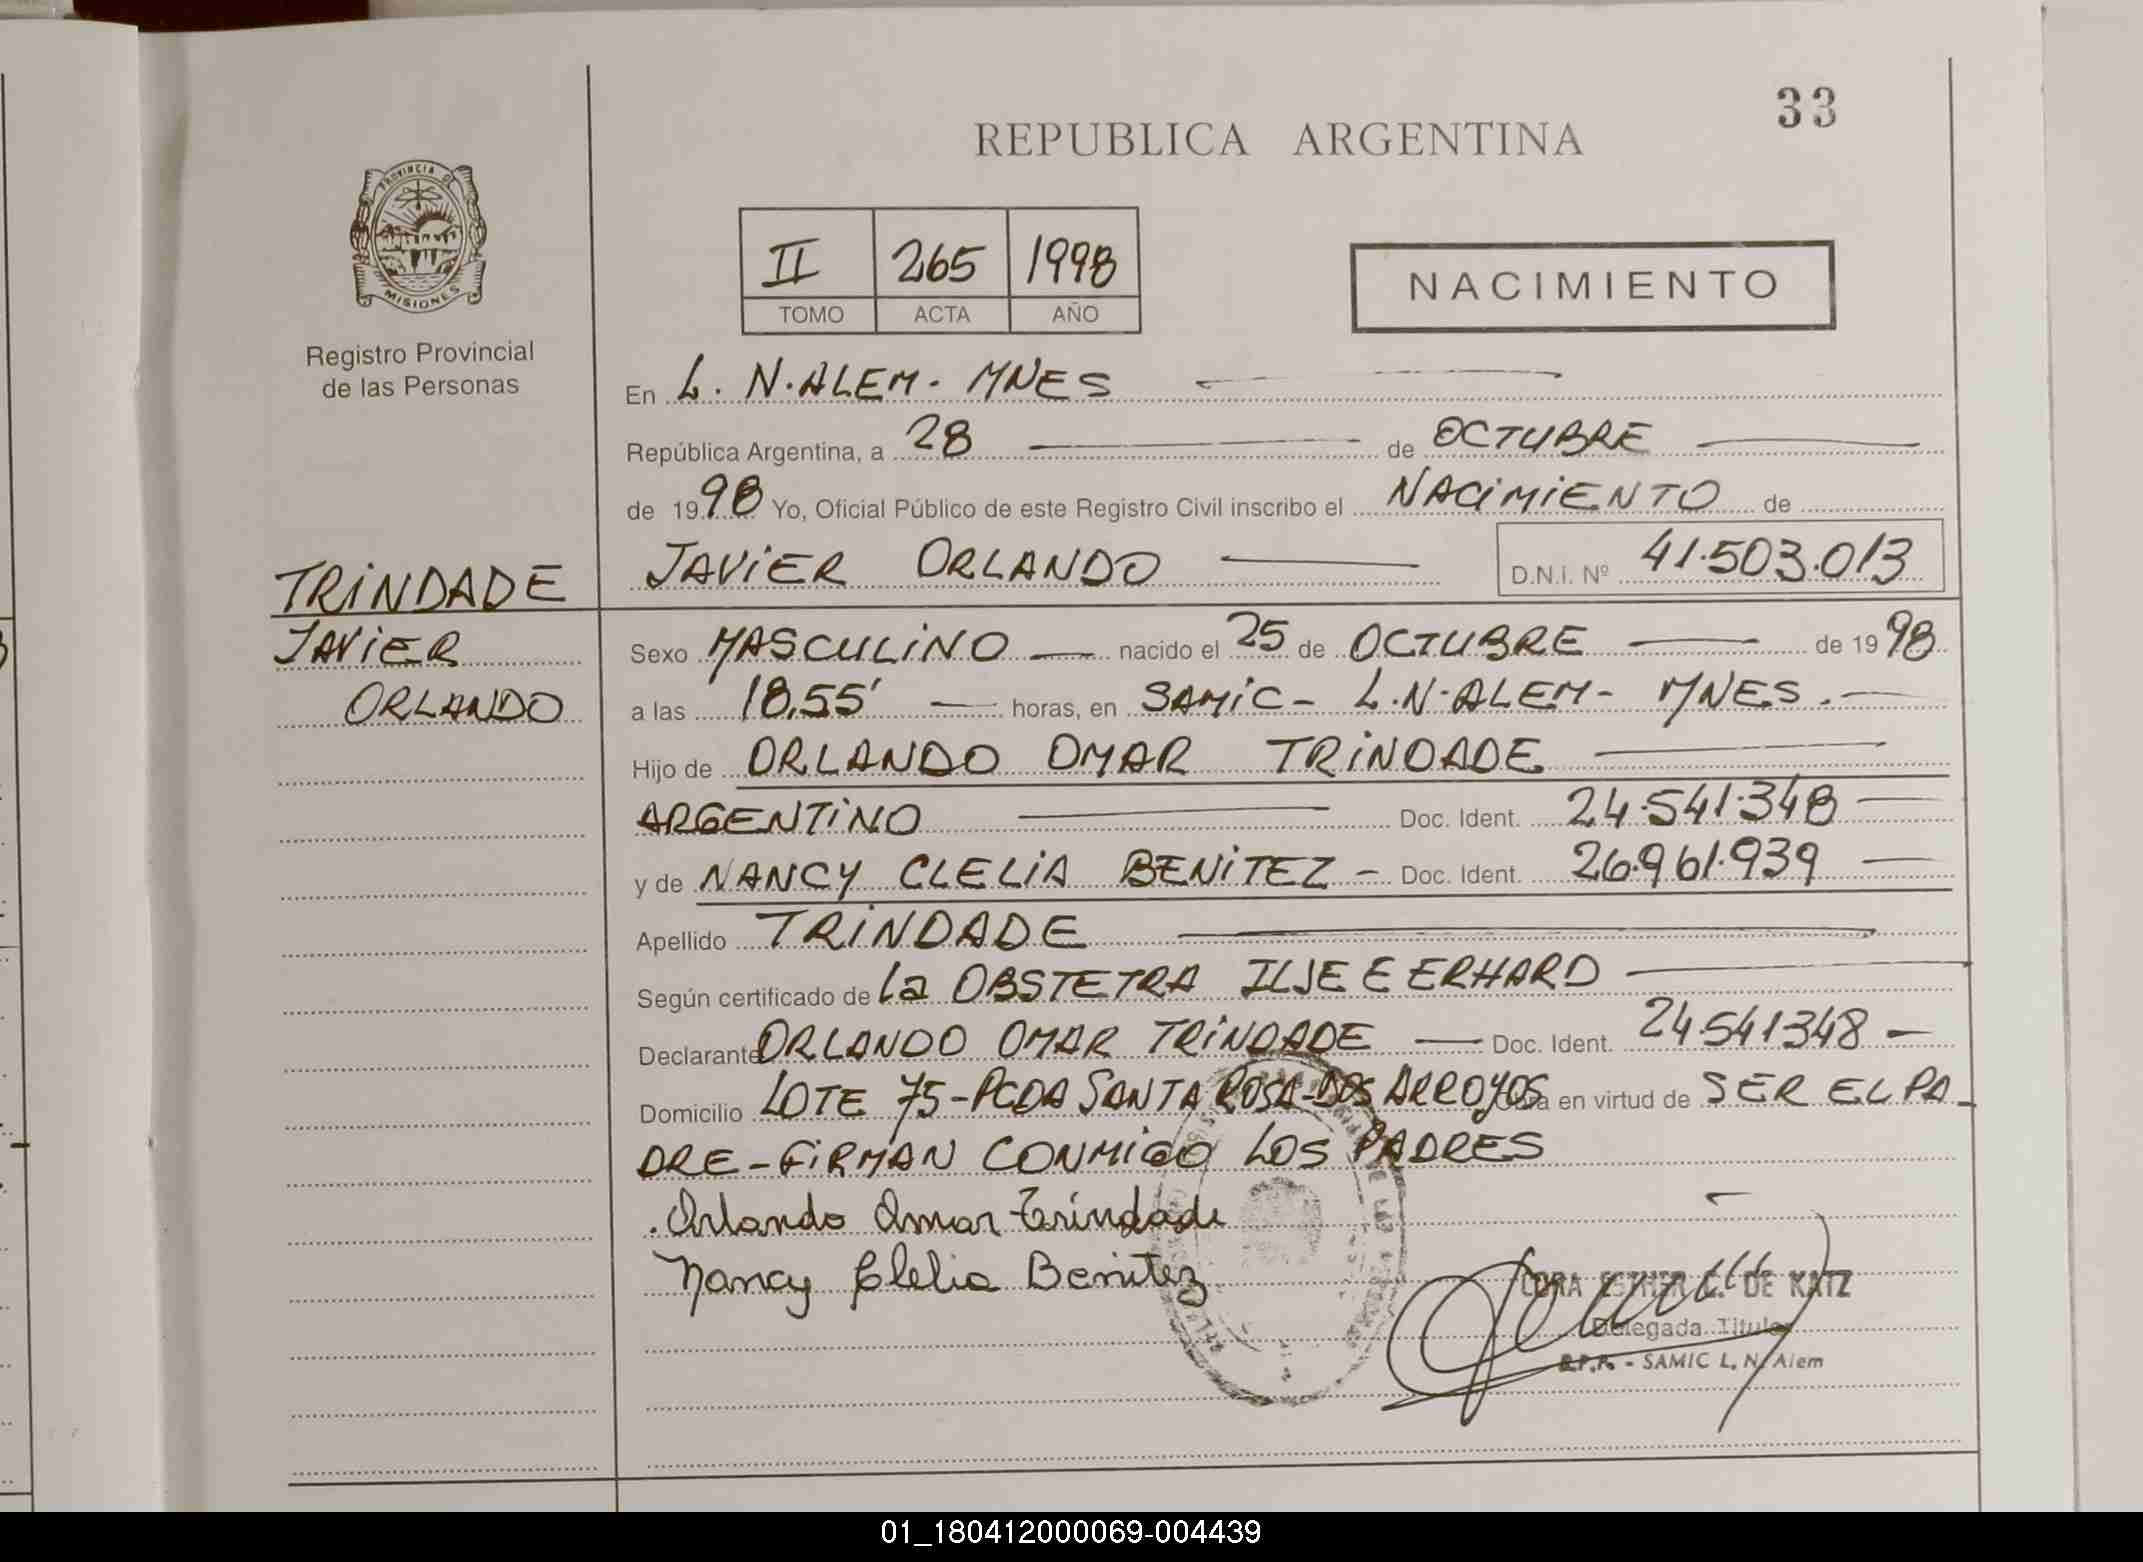 33
REPUBLICA ARGENTINA
PROVINCIA DE
MISIONES
Registro Provincial
de las Personas
II 265 1998
TOMO ACTA AÑO
NACIMIENTO
En L. N. ALEM - MNES
República Argentina, a 28 de OCTUBRE
de 1998 Yo, Oficial Público de este Registro Civil inscribo el NACIMIENTO de
TRINDADE JAVIER ORLANDO D.N.i. Nº 41.503.013
JAVIER Sexo MASCULINO nacido el 25 de OCTUBRE de 1998
ORLANDO a las 18,55' horas, en SAMIC - L.N.ALEM - MNES.
Hijo de ORLANDO OMAR TRINDADE
ARGENTINO Doc. Ident. 24.541.348
y de NANCY CLELIA BENITEZ - Doc. Ident. 26.961.939
Apellido TRINDADE
Según certificado de la OBSTETRA ILSE E ERHARD
Declarante ORLANDO OMAR TRINDADE Doc. Ident. 24541348 -
Domicilio LOTE 75 - PCDA SANTA ROSA - DOS ARROYOS en virtud de SER EL PA_
DRE - FIRMAN CONMIGO LOS PADRES
Orlando Omar Trindade
Nancy Clelia Benitez
CORA ESTHER C. DE KATZ
Delegada Titular
R.P.P. - SAMIC L. N. Alem
01_180412000069-004439